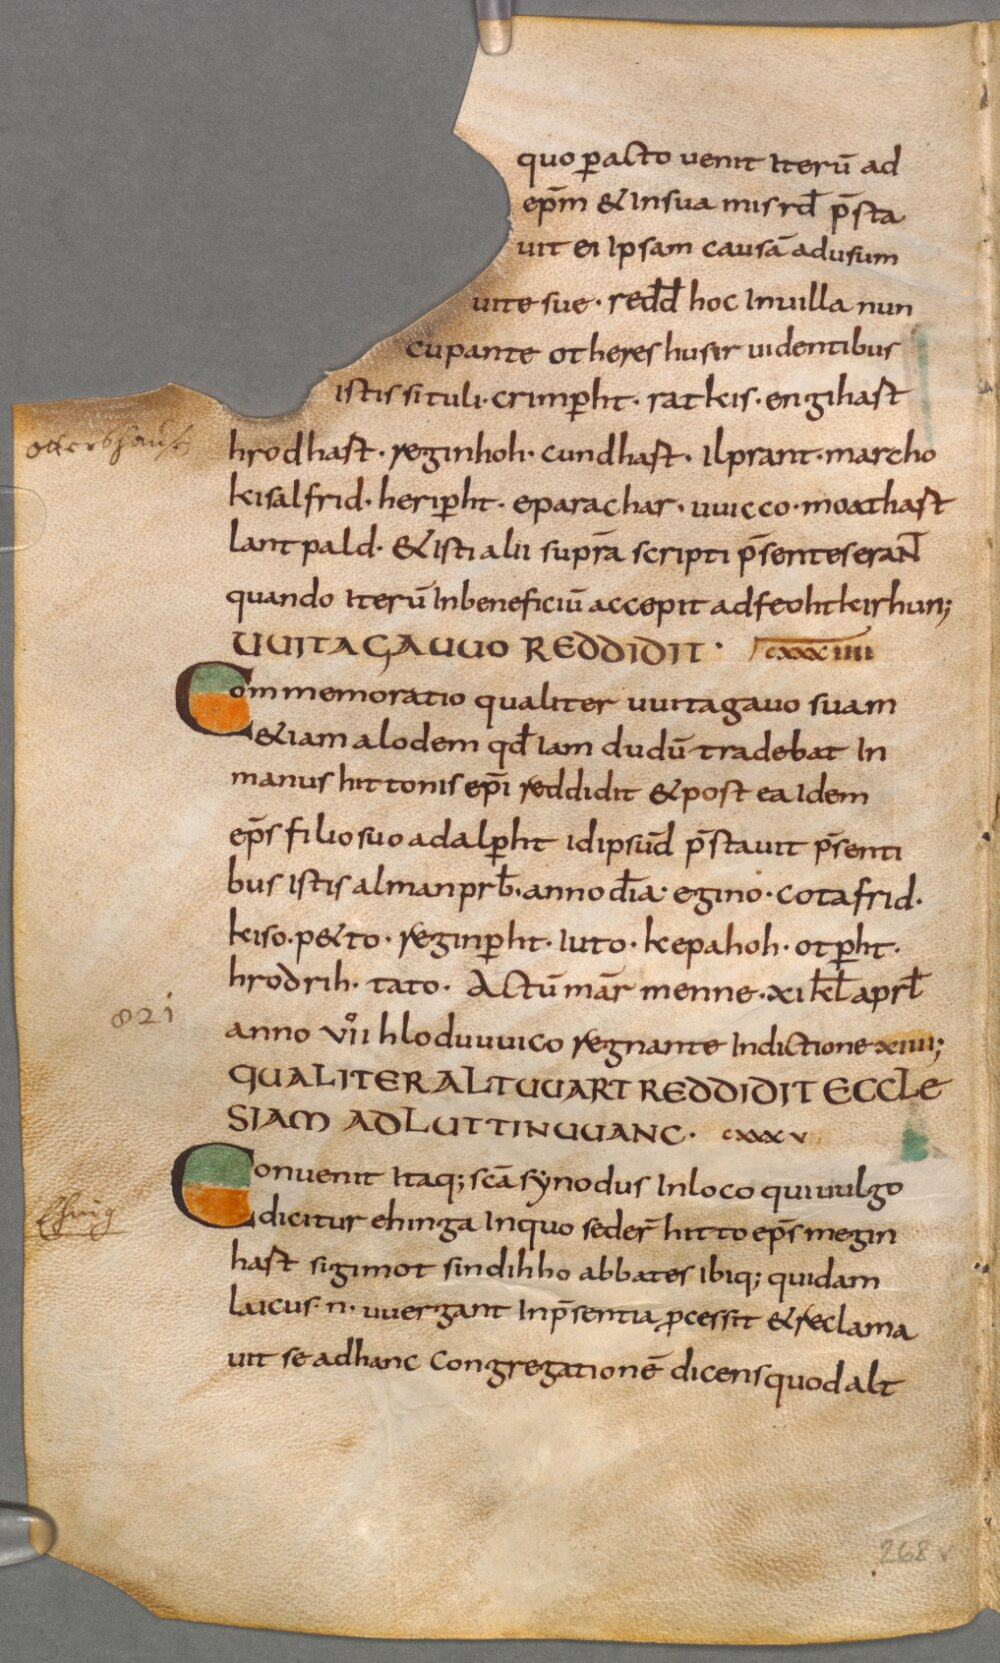 quo p̄acto uenit Iterū ad
ep̄m & Insua misrd̄ p̄sta
uit ei Ipsam causā adusum
uite sue · redd̄ hoc Inuilla nun
cupante otheres husir uidentibus
Istis situli · crimp̄ht · ratkis · engihast
ottershaus
hrodhast · reginhoh · cundhast · Ilprant · marcho
kisalfrid · herip̄ht · eparachar · uuicco · moathast
lantpald · & isti alii supr̄a scripti p̄senteseraN̄
quando Iterū Inbeneficiū accepit adfeohtkirhun;
UUITAGAUUO REDDIDIT · cxxxiiii
Commemoratio qualiter uuitagauo suam
&iam alodem qd̄ Iam dudū tradebat In
manus hittonis ep̄i reddidit & post ea Idem
ep̄s filio suo adalp̄ht idipsūd p̄stauit p̄senti
bus Istis alman prb̄ · anno d̄ia · egino · cotafrid ·
kiso · p&to · reginp̄ht · Iuto · kepahoh · otp̄ht ·
hrodrih · tato · Actū mār menne · xi kl̄ aprl̄
821
anno vıı̊ hloduuuico regnante Indictione xiiii;
QUALITER ALTUUART REDDIDIT ECCLE
SIAM AD LUTTINUUANC · cxxxv
Conuenit Itaq; scā synodus Inloco qui uulgo
Ehing
dicitur ehinga Inquo seder̄ hitto ep̄s megin
hast sigimot sindihho abbates Ibiq; quidam
laicus · n · uuergant Inp̄sentia p̄cessit & reclama
uit se adhanc congregationē dicens quod alt
268 v